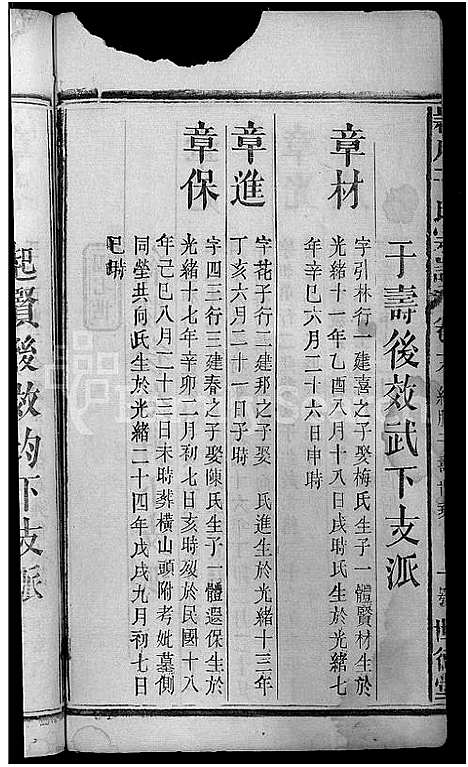 于壽後效武下支派
章材
字引林行一建喜之子娶梅氏生子一體賢材生於
光緒十一年乙酉八月十八日戌時氏生於光緒七
年辛巳六月二十六日申時
章進
字花子行二建邦之子娶　氏進生於光緒十三年
丁亥六月二十一日子時
章保
字四三行三建春之子娶陳氏生子一體還保生於
光緒十七年辛卯二月初七日亥時歿於民國十八
年己巳八月二十三日未時葬橫山頭附考妣墓側
同塋共向氏生於光緒二十四年戊戌九月初七日
巳時
起賢後效約下支派